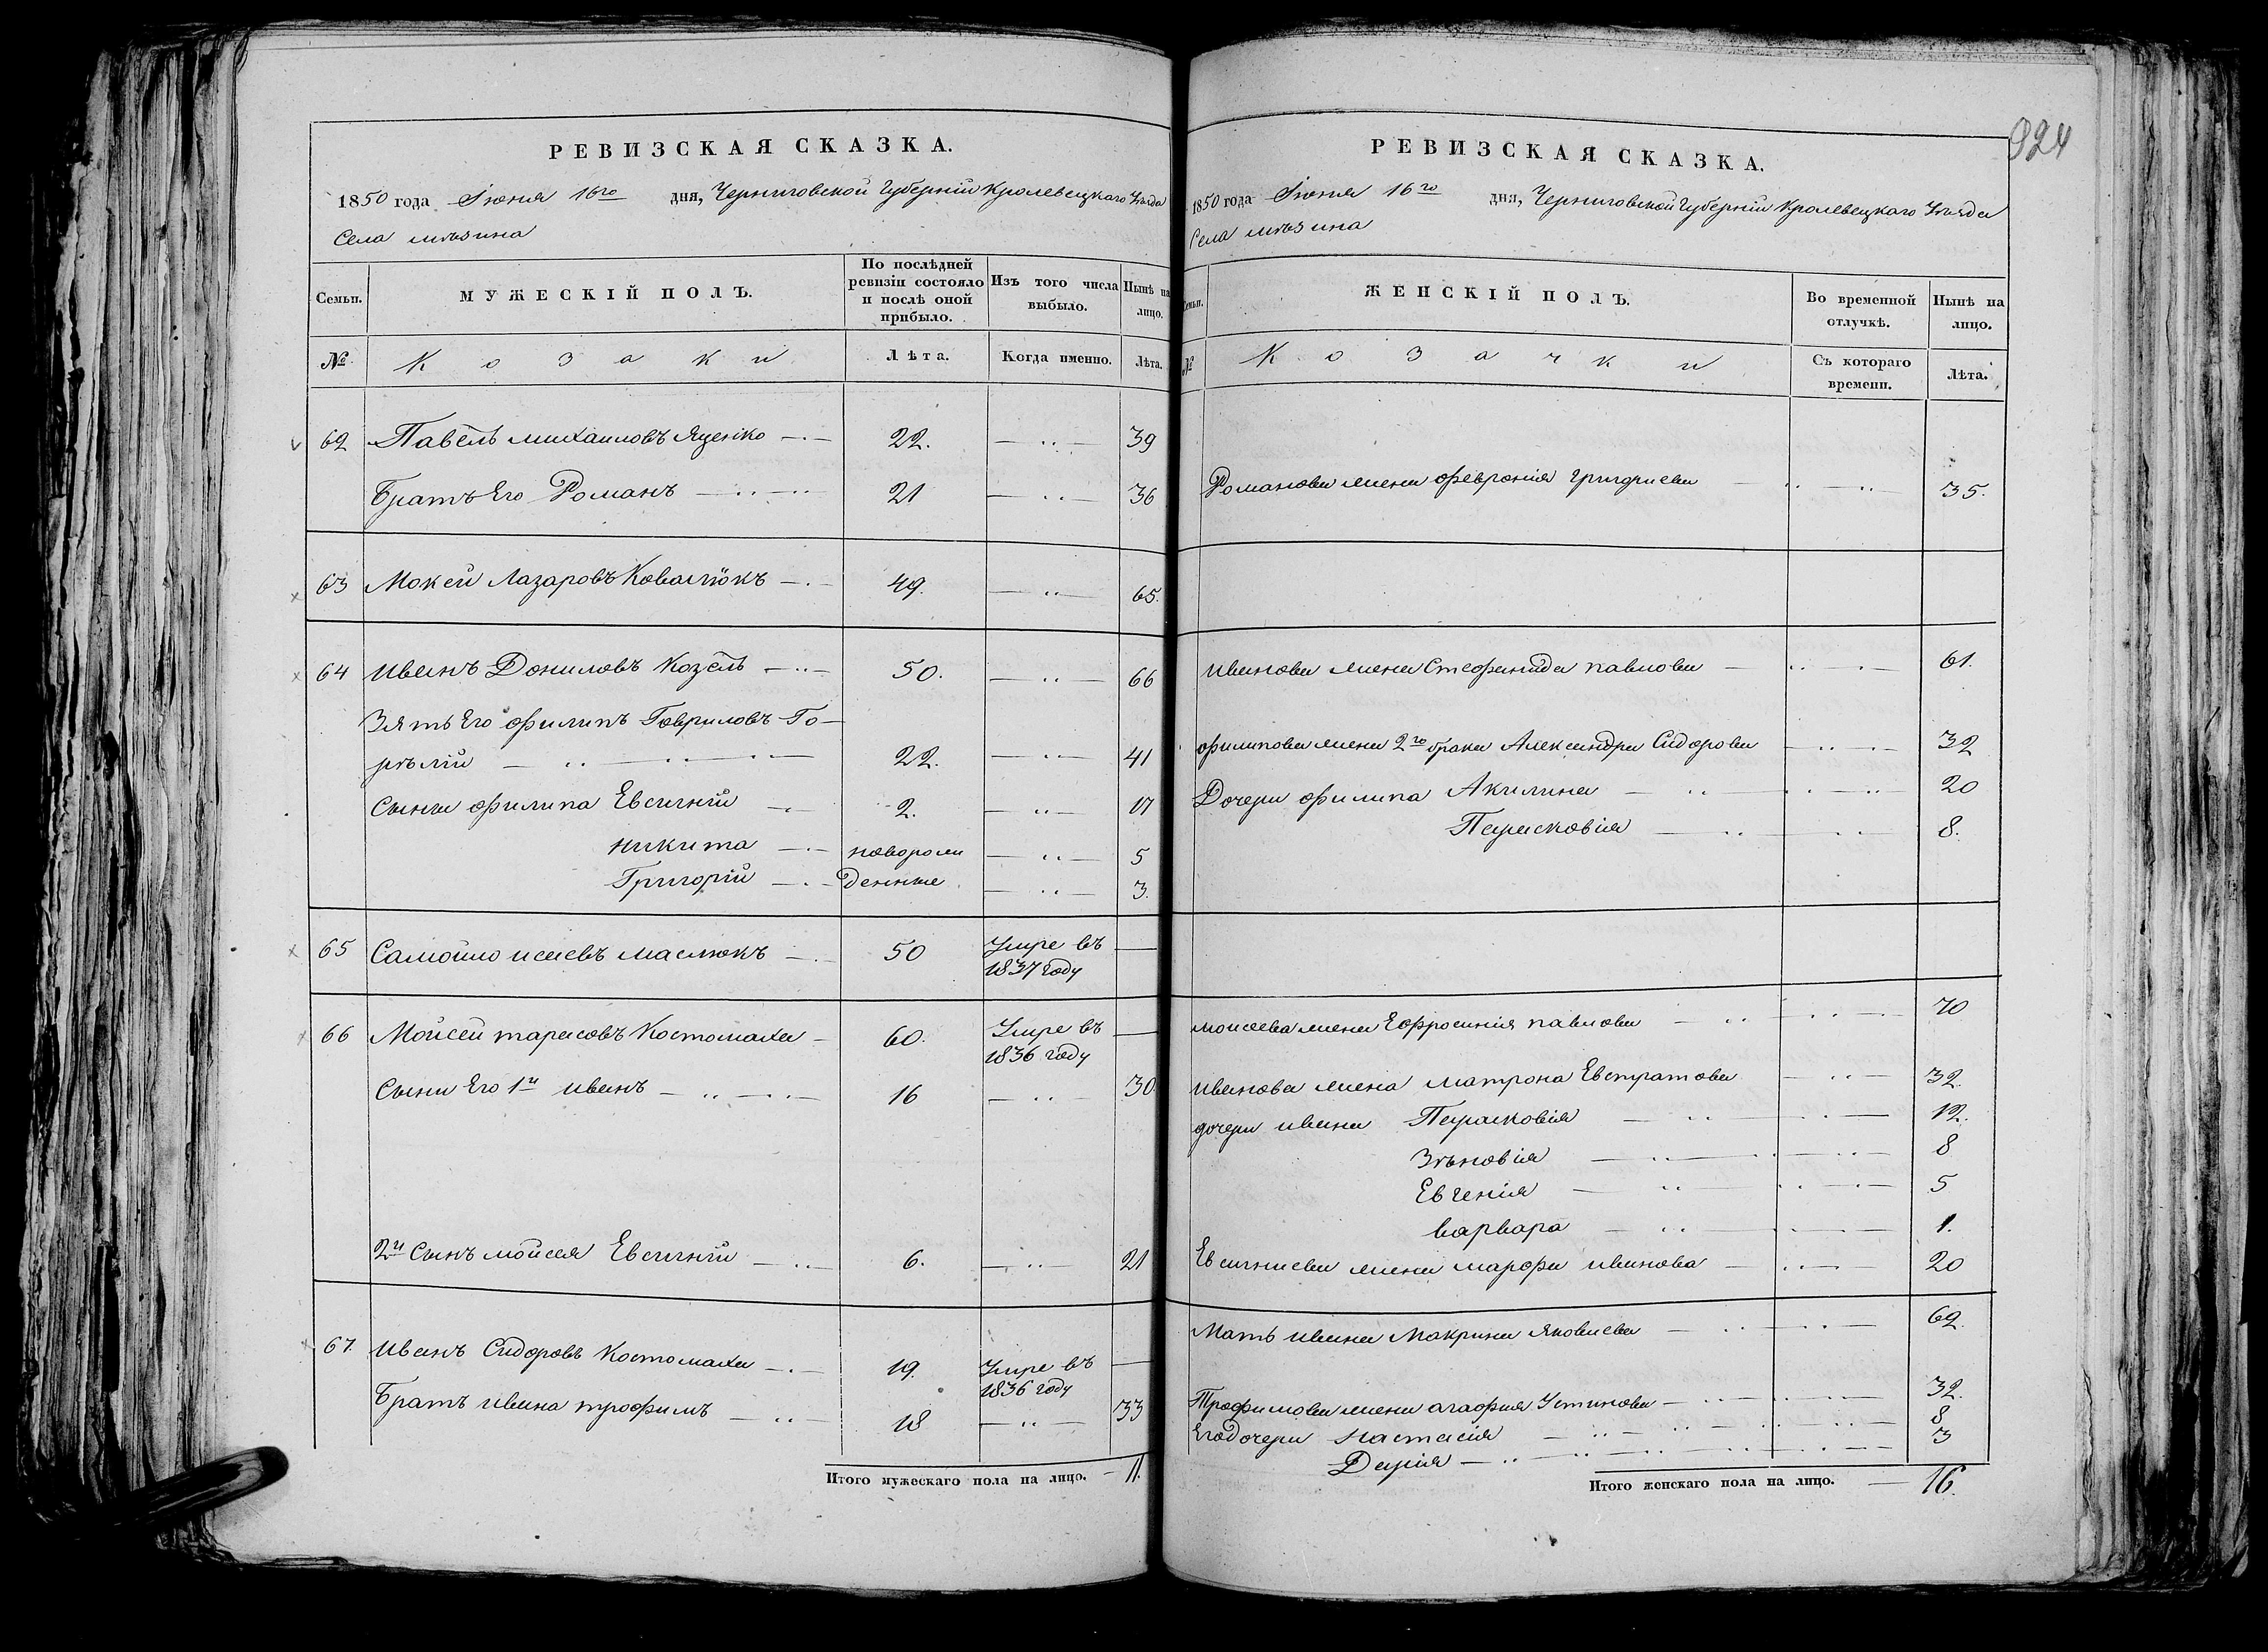 924
РЕВИЗСКАЯ СКАЗКА.
1850 года Іюня 16го дня, Черниговской Губерніи Кролевецкаго Уѣзда
Села Мѣзина
Семьи. МУЖЕСКІЙ ПОЛЪ. По послѣдней ревизіи состояло и послѣ оной прибыло. Изъ того числа выбыло. Нынѣ на лицо.
№ Козаки Лѣта. Когда именно. Лѣта.
62 Павелъ Михаиловъ Яценко 22. 39
Братъ Его Романъ 21 36
63 Мокей Лазаровъ Ковалюкъ 49. 65.
64 Иванъ Даниловъ Козелъ 50. 66
Зять Его Филипъ Гавриловъ Го-
рѣлій 22. 41
Сыны Филипа Евсигній 2. 17
Никита новорож 5
Григорій денные 3.
65 Самойло Исаевъ Маслюкъ 50 Умре въ
1837 году
66 Мойсей Тарасовъ Костомаха 60. Умре въ
1836 году
Сыны Его 1й Иванъ 16 30
2й Сынъ Мойсея Евсигній 6. 21
67. Иванъ Сидоровъ Костомаха 19. Умре въ
1836 году
Братъ Ивана Трофимъ 18 33
Итого мужескаго пола на лицо. 11.
РЕВИЗСКАЯ СКАЗКА.
1850 года Іюня 16го дня, Черниговской Губерніи Кролевецкаго Уѣзда
Села Мѣзина
Семьи. ЖЕНСКІЙ ПОЛЪ. Во временной отлучкѣ. Нынѣ на лицо.
№ Козачки Съ котораго времени. Лѣта.
Романова жена Февронія Григориева 35.
Иванова жена Стефанида Павлова 61.
Филипова жена 2го брака Александра Сидорова 32
Дочери Филипа Акилина 20
Парасковія 8.
Моисеева жена Ефросинія Павлова 70
Иванова жена Матрона Евстратова 32.
дочери Ивана Парасковія 12.
Зѣновія 8
Евгенія 5
Варвара 1.
Евсигниева жена Марфа Иванова 20
Мать Ивана Макрина Яковлева 62.
Трофимова жена Агафия Устинова 32.
Его дочери Настасія 8
Дарія 3
Итого женскаго пола на лицо. 16.